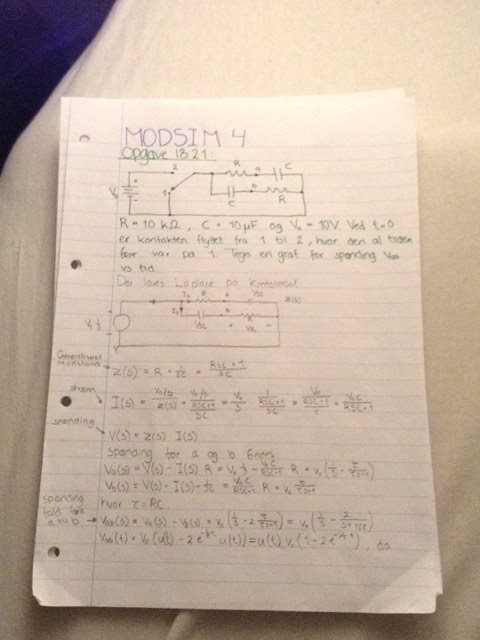 MODSIM 4
Opgave 18.21:
2 R a C
V₀ 1 b
C R
R = 10 kΩ, C = 10 μF og V₀ = 10V. Ved t=0
er kontakten flyttet fra 1 til 2, hvor den al tiden
før var på 1. Tegn en graf for spænding Vab
vs tid.
Der laves Laplace på kredsløbet
R a 1/SC Z(s)
V₀ 1/s 1/SC b R
Generaliseret
Modstand
Z(s) = R + 1/SC = (RSC + 1)/SC
strøm
I(s) = (V₀/s)/Z(s) = (V₀/s)/((RSC+1)/SC) = V₀/s · 1/((RSC+1)/SC) = V₀/((RSC+1)/C) = V₀C/(RSC+1)
spænding
V(s) = Z(s) · I(s)
spænding for a og b findes
Va(s) = V(s) - I(s) · R = V₀ 1/s - V₀C/(RSC+1) · R = V₀ (1/s - τ/(τs+1))
Vb(s) = V(s) - I(s) · 1/SC = V₀C/(RSC+1) · R = V₀ τ/(τs+1)
hvor τ = RC
spænding
fald fra
a til b
Vab(s) = Va(s) - Vb(s) = V₀ (1/s - 2 τ/(τs+1)) = V₀ (1/s - 2/(s+1/τ))
Vab(t) = V₀ (u(t) - 2e^(-t/τ) u(t)) = u(t) V₀ (1 - 2e^(-1/τ t)), da